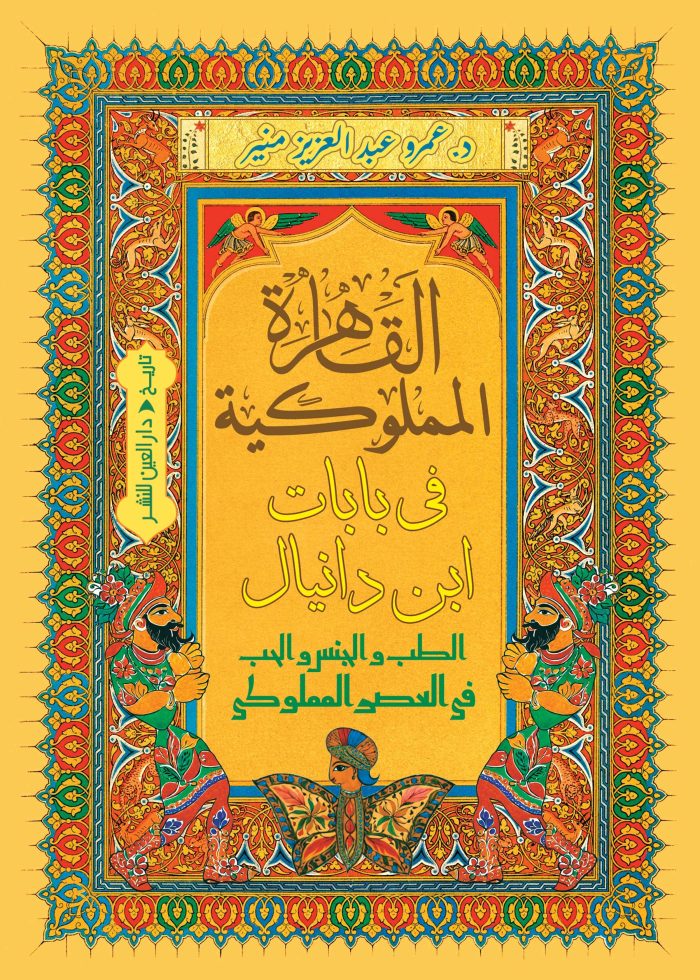 د. عمرو عبد العزيز منير
القاهرة
المملوكية
فى بابات
ابن دانيال
الطب والجنس والحب
في العصر المملوكي
تاريخ
دار العين للنشر